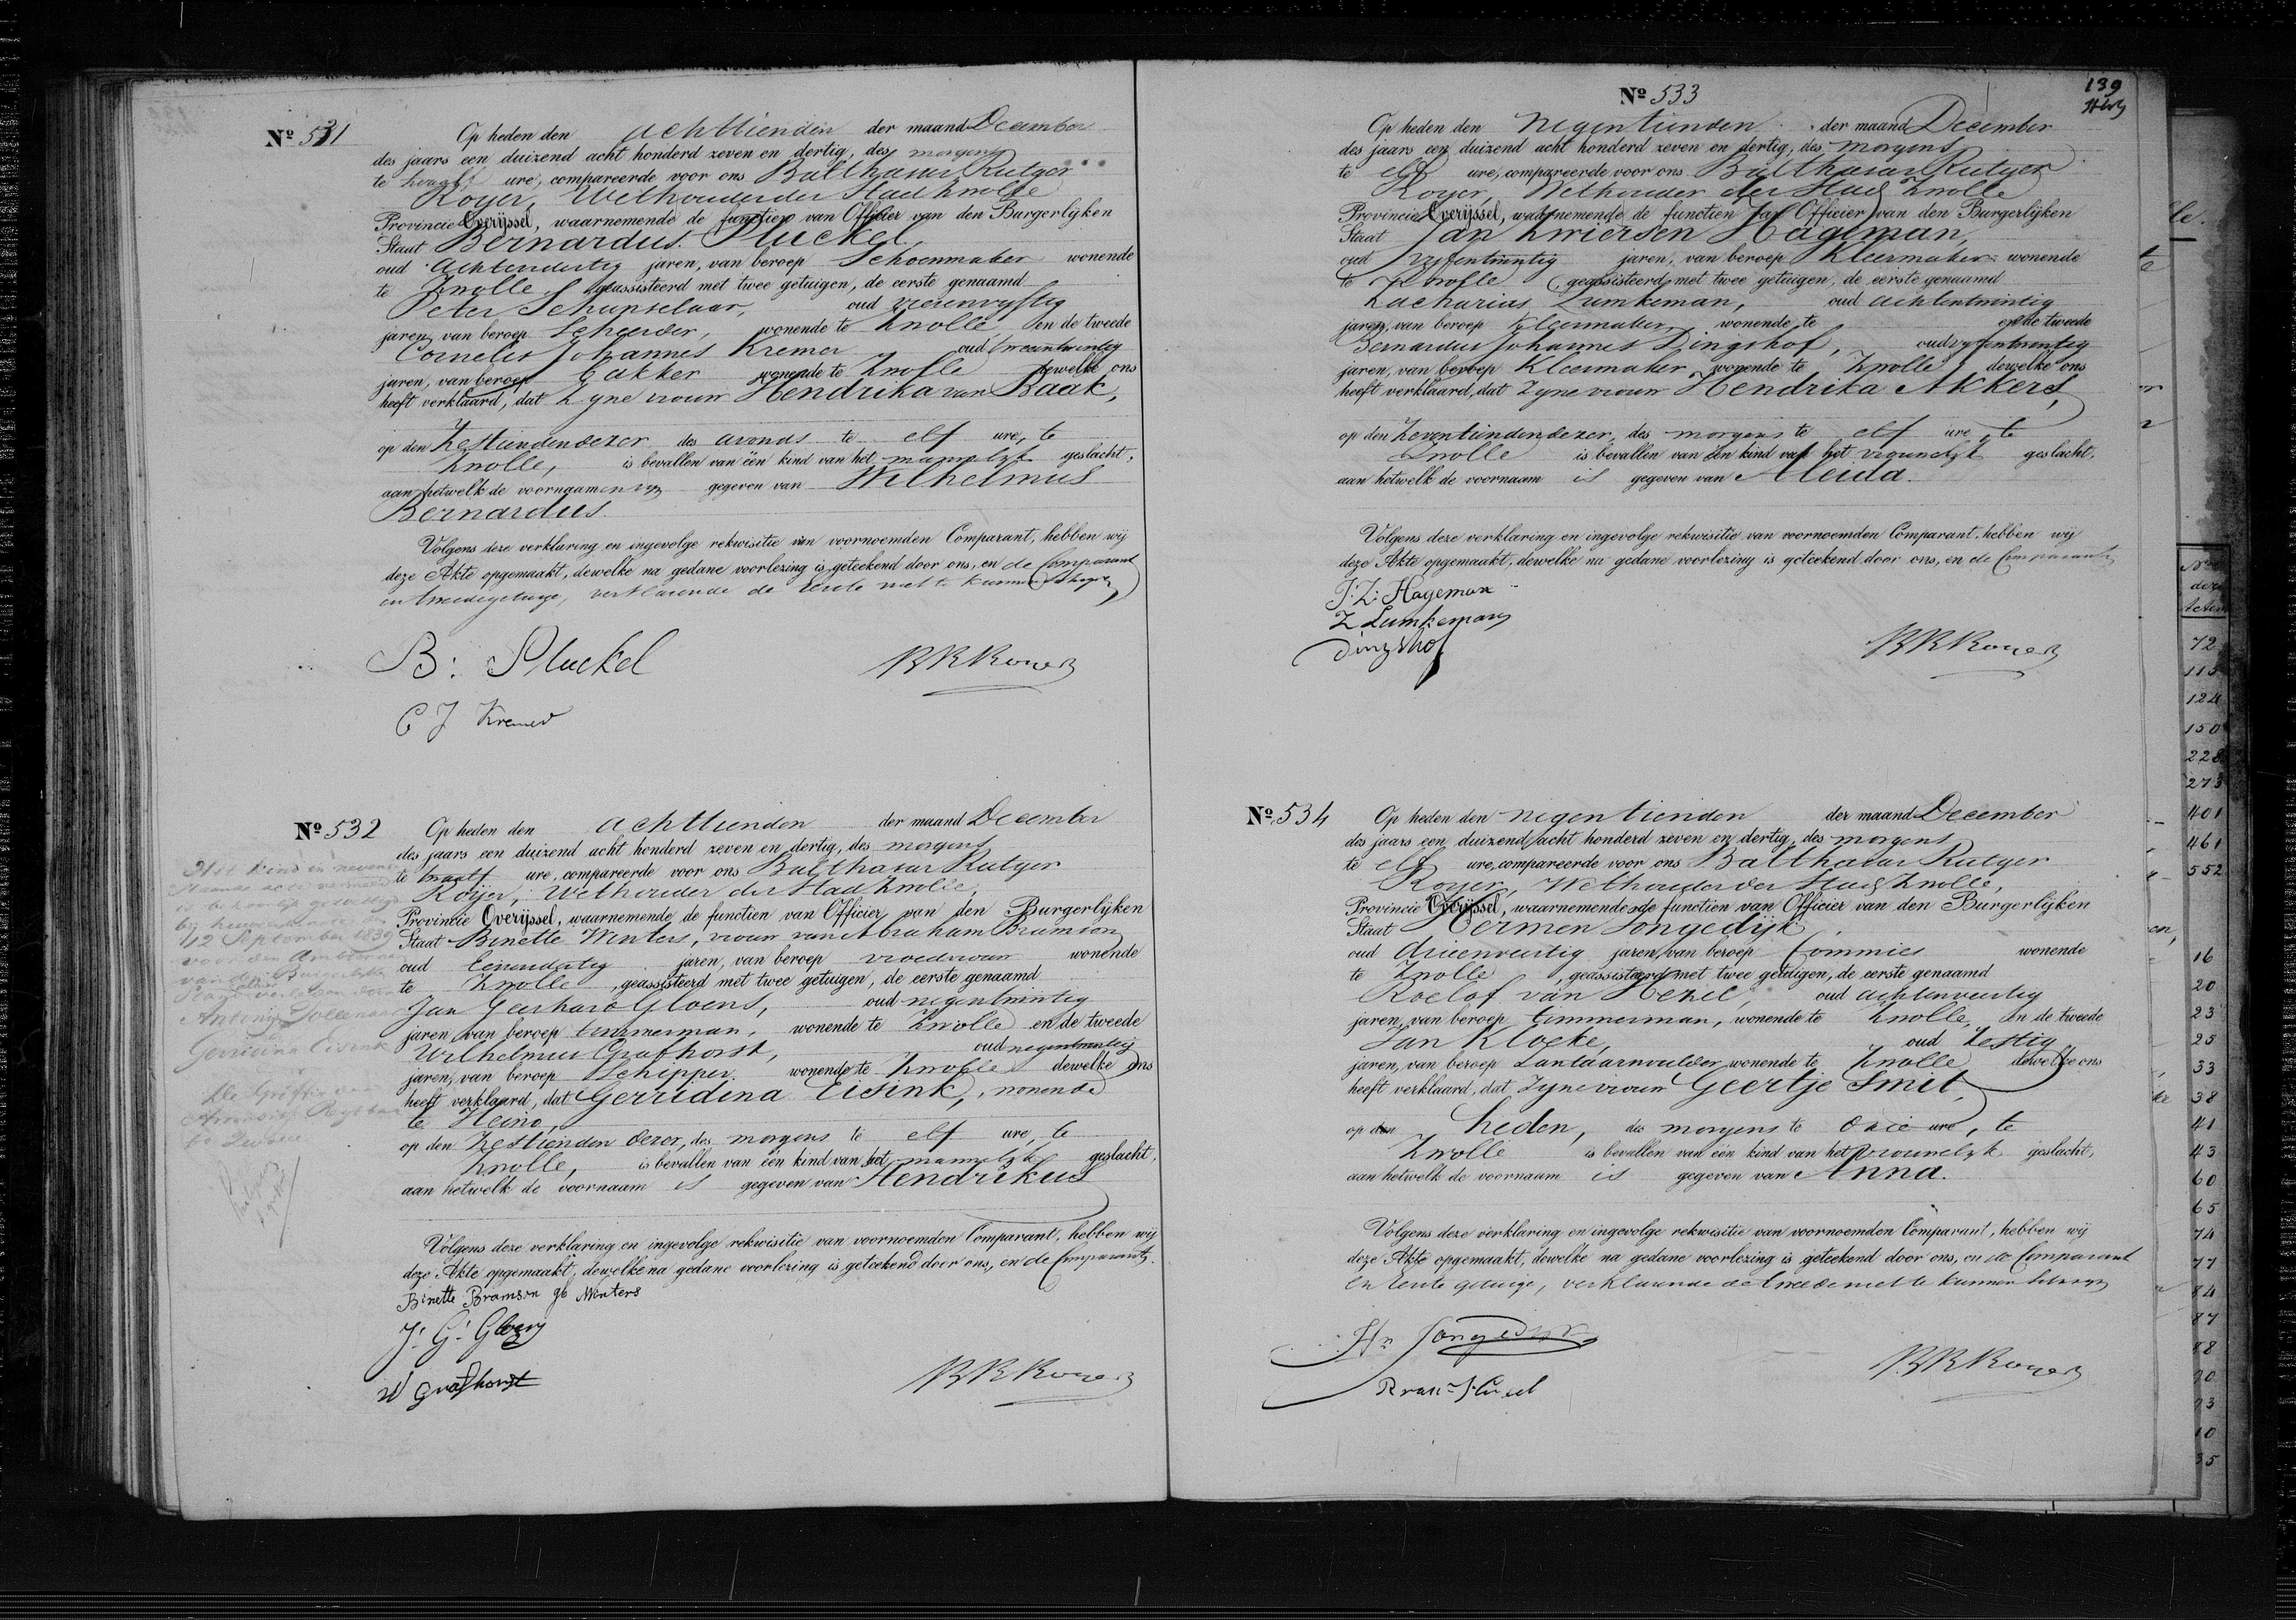 Nº 531
Op heden den achttienden der maand December
des jaars een duizend acht honderd zeven en dertig, des morgens
te twaalf ure, compareerde voor ons Balthasar Rutger
Royer, Wethouder der Stad Zwolle
Provincie Overijssel, waarnemende de functien van Officier van den Burgerlijken
Staat Bernardus Pluckel,
oud achtendertig jaren, van beroep Schoenmaker wonende
te Zwolle, geassisteerd met twee getuigen, de eerste genaamd
Peter Schupselaar, oud vierenvyftig
jaren, van beroep Scheerder, wonende te Zwolle, en de tweede
Cornelis Johannes Kremer oud tweentwintig
jaren, van beroep bakker wonende te Zwolle dewelke ons
heeft verklaard, dat Zyne vrouw Hendrika van Baak,
op den Zestiendendezer des avonds te elf ure, te
Zwolle, is bevallen van één kind van het mannelyk geslacht,
aan hetwelk de voornaamen zyn gegeven van Wilhelmus
Bernardus.
Volgens deze verklaring en ingevolge rekwisitie van voornoemden Comparant, hebben wij
deze Akte opgemaakt, dewelke na gedane voorlezing is geteekend door ons, en de Comparant
en tweede getuige, verklarende de eerste niet te kunnen schryven
B: Pluckel
BRRoyer
C J Kremer
Nº 532
Op heden den achttienden der maand December
des jaars een duizend acht honderd zeven en dertig, des morgens
te twaalf ure, compareerde voor ons Balthasar Rutger
Royer, Wethouder der Stad Zwolle,
Provincie Overijssel, waarnemende de functien van Officier van den Burgerlijken
Staat Binette Winters, vrouw van Abraham Bramson
oud Eenendertig jaren, van beroep vroedvrouw wonende
te Zwolle, geassisteerd met twee getuigen, de eerste genaamd
Jan Gerhard Gloens, oud negentwintig
jaren van beroep timmerman, wonende te Zwolle en de tweede
Wilhelmus Grafhorst, oud negentwintig
jaren, van beroep Schipper wonende te Zwolle dewelke ons
heeft verklaard, dat Gerridina Eisink, wonende
te Heino,
op den Zestienden dezer, des morgens te elf ure, te
Zwolle, is bevallen van één kind van het mannelyk geslacht,
aan hetwelk de voornaam is gegeven van Hendrikus
Volgens deze verklaring en ingevolge rekwisitie van voornoemden Comparant, hebben wij
deze Akte opgemaakt, dewelke na gedane voorlezing is geteekend door ons, en de Comparanten
Binette Bramson gb Winters
J: G: Gloens
W Grafhorst
BRRoyer
kind in
12 September 1839
voor den Ambtenaar
van den Burgerlijken
Gerridina Eisink
De Griffier
te Zwolle
139
Nº 533
Op heden den negentienden der maand December
des jaars een duizend acht honderd zeven en dertig, des morgens
te elf ure, compareerde voor ons Balthasar Rutger
Royer, Wethouder der Stad Zwolle
Provincie Overijssel, waarnemende de functien van Officier van den Burgerlijken
Staat Jan Zwiersen Hageman,
oud vyfentwintig jaren, van beroep Kleermaker wonende
te Zwolle, geassisteerd met twee getuigen, de eerste genaamd
Zacharias Lumkeman, oud achtentwintig
jaren, van beroep Kleermaker, wonende te en de tweede
Bernardus Johannes Dingshof, oud vyfentwintig
jaren, van beroep Kleermaker wonende te Zwolle dewelke ons
heeft verklaard, dat Zyne vrouw Hendrika Akkers,
op den Zeventiendendezer, des morgens te elf ure te
Zwolle is bevallen van één kind van het vrouwelyk geslacht,
aan hetwelk de voornaam is gegeven van Aleida.
Volgens deze verklaring en ingevolge rekwisitie van voornoemden Comparant, hebben wij
deze Akte opgemaakt, dewelke na gedane voorlezing is geteekend door ons, en de Comparanten
J: Z: Hageman
Z Lumkeman
Dingshof
BRRoyer
Nº 534
Op heden den negentienden der maand December
des jaars een duizend acht honderd zeven en dertig, des morgens
te elf ure, compareerde voor ons Balthasar Rutger
Royer, Wethouder der Stad Zwolle,
Provincie Overijssel, waarnemende de functien van Officier van den Burgerlijken
Staat Hermen Jongedijk,
oud drieenveertig jaren, van beroep Commies wonende
te Zwolle, geassisteerd met twee getuigen, de eerste genaamd
Roelof van Hezel, oud achtenveertig
jaren, van beroep timmerman, wonende te Zwolle, en de tweede
Jan Kloeke, oud Zestig
jaren, van beroep Lantaarnvulder wonende te Zwolle dewelke ons
heeft verklaard, dat Zyne vrouw Geertje Smit,
op den heden, des morgens te drie ure, te
Zwolle is bevallen van één kind van het vrouwelyk geslacht,
aan hetwelk de voornaam is gegeven van Anna.
Volgens deze verklaring en ingevolge rekwisitie van voornoemden Comparant, hebben wij
deze Akte opgemaakt, dewelke na gedane voorlezing is geteekend door ons, en de Comparant
en eerste getuige, verklarende de tweede niet te kunnen schryven
Hn Jongedijk
BRRoyer
72
113
124
150
228
273
401
461
552
16
20
23
25
33
38
41
43
60
65
74
77
84
87
88